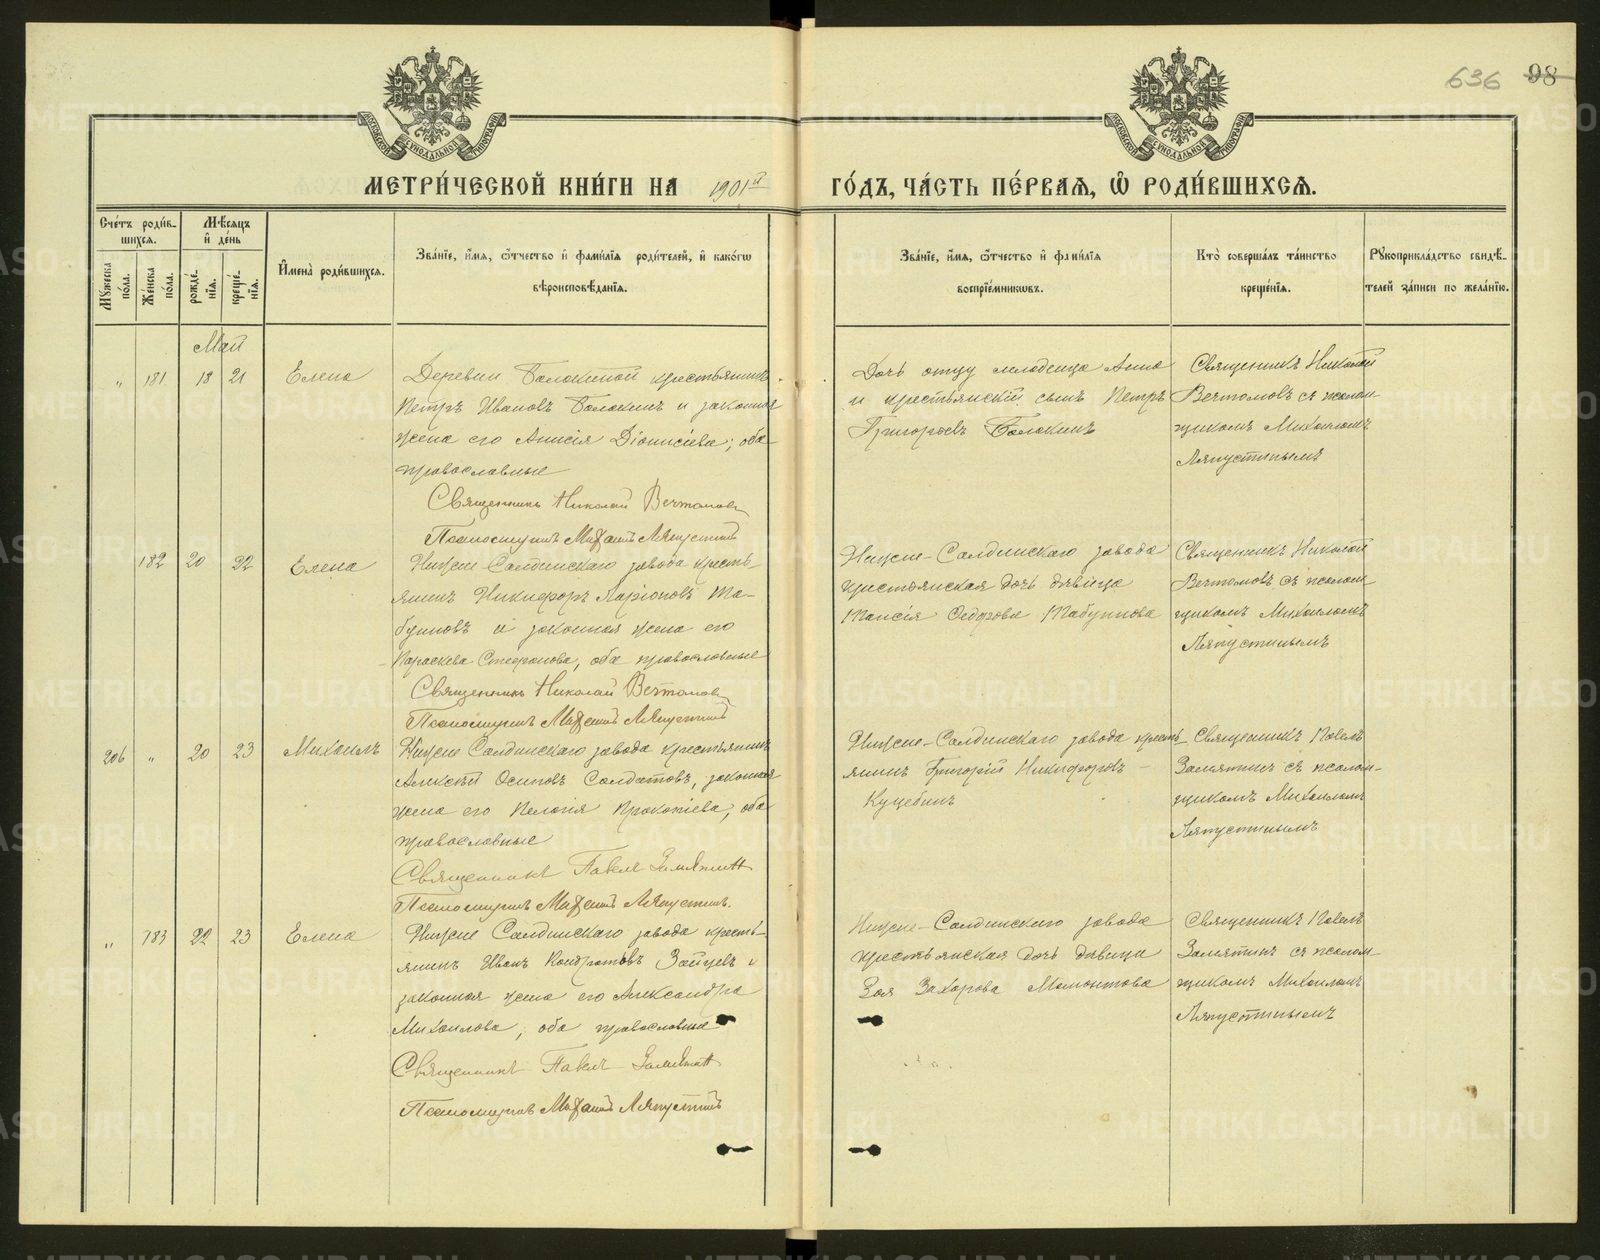 636 98
МОСКОВСКОЙ СУНОДАЛЬНОЙ ТИПОГРАФІИ
МОСКОВСКОЙ СУНОДАЛЬНОЙ ТИПОГРАФІИ
МЕТРИ́ЧЕСКОЙ КНИ́ГИ НА 1901й ГО́ДЪ, ЧА́СТЬ ПЕ́РВАѦ, Ѽ РОДИ́ВШИХСѦ.
Сче́тъ роди́в-
шихсѧ.
Мꙋ́жеска по́ла.
Же́нска по́ла.
Мѣ́сѧцъ
и҆ де́нь
рожде́-
нїѧ.
креще́-
нїѧ.
И҆мена̀ роди́вшихсѧ.
Зва́нїе, и҆́мѧ, ѻ҆́тчество и҆ фами́лїѧ роди́телей, и҆ како́гѡ
вѣроисповѣ́данїѧ.
Зва́нїе, и҆́мѧ, ѻ҆́тчество и҆ фами́лїѧ
воспрїе́мникѡвъ.
Кто̀ соверша́лъ та́инство
креще́нїѧ.
Рꙋкоприкла́дство свидѣ́-
телей за́писи по жела́нїю.
Май
" 181 18 21 Елена
Деревни Балакиной крестьянинъ
Петръ Ивановъ Балакинъ и законная
жена его Анисія Діонисіева; оба
православные
Священникъ Николай Вечтомовъ
Псаломщикъ Михаилъ Ляпустинъ
Дочь отцу молодица Анна
и крестьянскій сынъ Петръ
Григорьевъ Балакинъ
Священникъ Николай
Вечтомовъ съ псалом-
щикомъ Михаиломъ
Ляпустинымъ
182 20 22 Елена
Нижне-Салдинскаго завода кресть-
янинъ Никифоръ Ларіоновъ Та-
бунковъ и законная жена его
Параскева Стефанова, оба православные
Священникъ Николай Вечтомовъ
Псаломщикъ Михаилъ Ляпустинъ
Нижне-Салдинскаго завода
крестьянская дочь дѣвица
Таисія Ѳедорова Табункова
Священникъ Николай
Вечтомовъ съ псалом-
щикомъ Михаиломъ
Ляпустинымъ
206 " 20 23 Михаилъ
Нижне Салдинскаго завода крестьянинъ
Алексѣй Осиповъ Солдатовъ, законная
жена его Пелагія Прокопіева, оба
православные
Священникъ Павелъ Замятинъ
Псаломщикъ Михаилъ Ляпустинъ.
Нижне-Салдинскаго завода кресть-
янинъ Григорій Никифоровъ
Священникъ Павелъ
Замятинъ съ псалом-
щикомъ Михаиломъ
Ляпустинымъ
" 183 22 23 Елена
Нижне Салдинскаго завода кресть-
янинъ Иванъ Кондратовъ Зайцевъ и
законная жена его Александра
Михаилова, оба православные
Священникъ Павелъ Замятинъ
Псаломщикъ Михаилъ Ляпустинъ
Нижне-Салдинскаго завода
крестьянская дочь дѣвица
Зоя Захарова Мамонтова
Священникъ Павелъ
Замятинъ съ псалом-
щикомъ Михаиломъ
Ляпустинымъ
METRIKI.GASO-URAL.RU